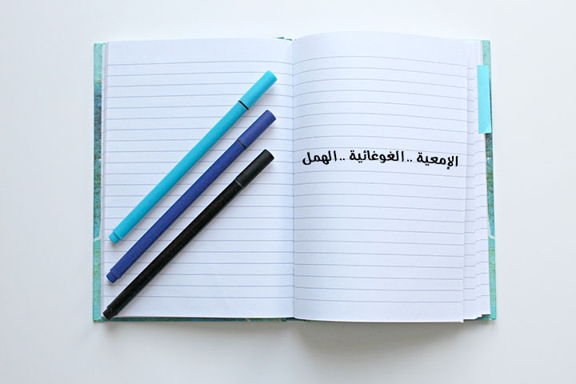 الإمعية .. الغوغائية .. الهمل